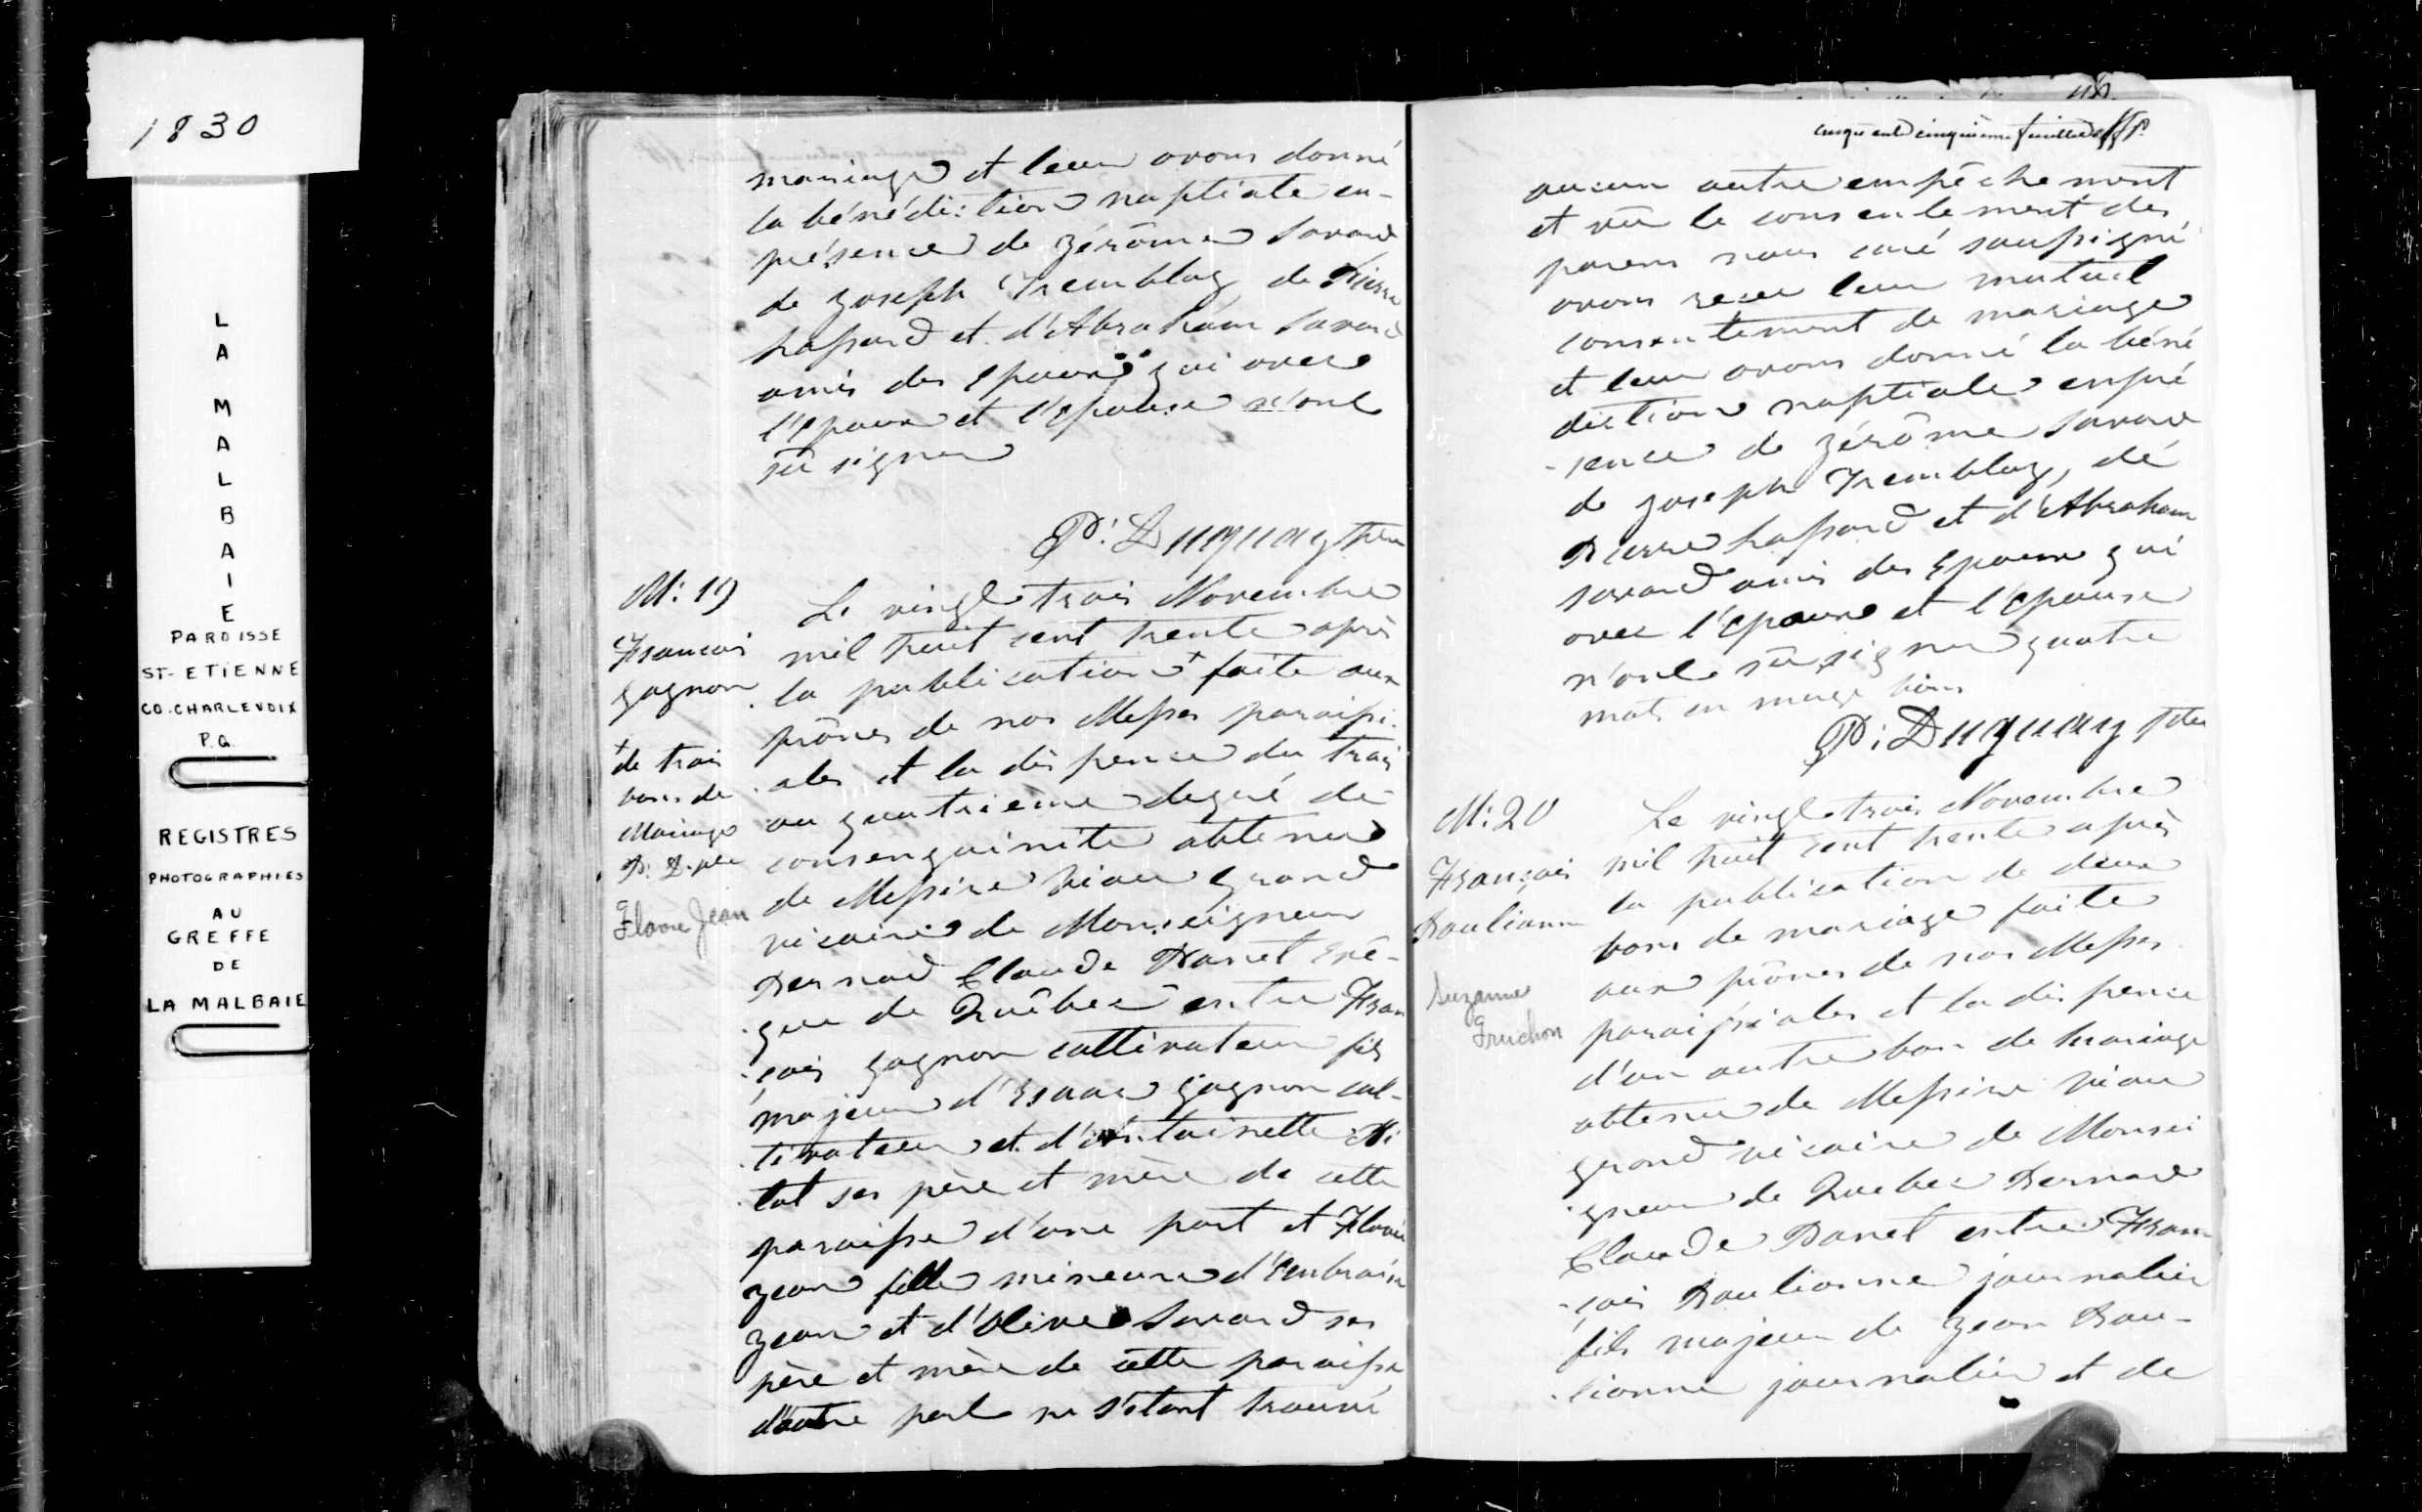 1830
LA MALBAIE
PAROISSE
ST-ETIENNE
CO. CHARLEVOIX
P.Q.
REGISTRES
PHOTOGRAPHIES
AU
GREFFE
DE
LA MALBAIE
mariage et leur avons donné
la bénédiction nuptiale en
présence de Jérôme Savard
de Joseph Tremblay de Pierre
Chassard et d'Abraham Savard
amis des Epoux qui avec
l'Epoux et l'Epouse n'ont
sû signer
P: Duguay Ptre
M: 19
François
gagnon
+
de trois
bans de
Mariage
P: D. ptre
Flavie Jean
Le vingt trois Novembre
mil huit cent trente après
la publication + faite aux
prônes de nos Messes paroissi-
ales et la dispense du trois
au quatrième degré de
consenguinité obtenue
de Messire Viau grand
vicaire de Monseigneur
Bernard Claude Panet Evê-
que de Québec entre Fran
çois gagnon cultivateur fils
majeur d'Isaac gagnon cul-
tivateur et d'Antoinette Pi
lot ses père et mère de cette
paroisse d'une part et Flavie
Jean fille mineure d'Embroise
Jean et d'Olive Savard ses
père et mère de cette paroisse
d'autre part ne s'étant trouvé
cinquante cinquième feuillet
aucun autre empêchement
et vû le consentement des
parens nous curé soussigné
avons reçu leur mutuel
consentement de mariage
et leur avons donné la béné
diction nuptiale en pré
sence de Jérôme Savard
de Joseph Tremblay, de
Pierre Chassard et d'Abraham
Savard amis des Epoux qui
avec l'Epoux et l'Epouse
n'ont sû signer quatre
mots en marge bons
P: Duguay Ptre
M: 20
François
Boulianne
Suzanne
Truchon
Le vingt trois Novembre
mil huit cent trente après
la publication de deux
bans de mariage faite
aux prônes de nos Messes
paroissiales et la dispense
d'un autre ban de mariage
obtenu de Messire Viau
grand vicaire de Monsei
gneur de Quebec Bernard
Claude Panet entre Fran
çois Boulianne journalier
fils majeur de Jean Bou-
lianne journalier et de